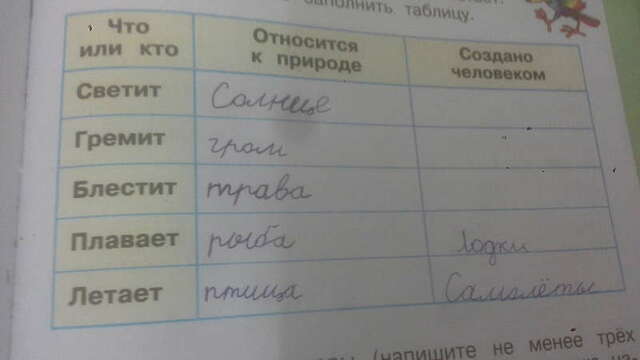 заполнить таблицу.
Что или кто Относится к природе Создано человеком
Светит Солнце
Гремит гром
Блестит трава
Плавает рыба лодки
Летает птица Самолёты
(напишите не менее трёх